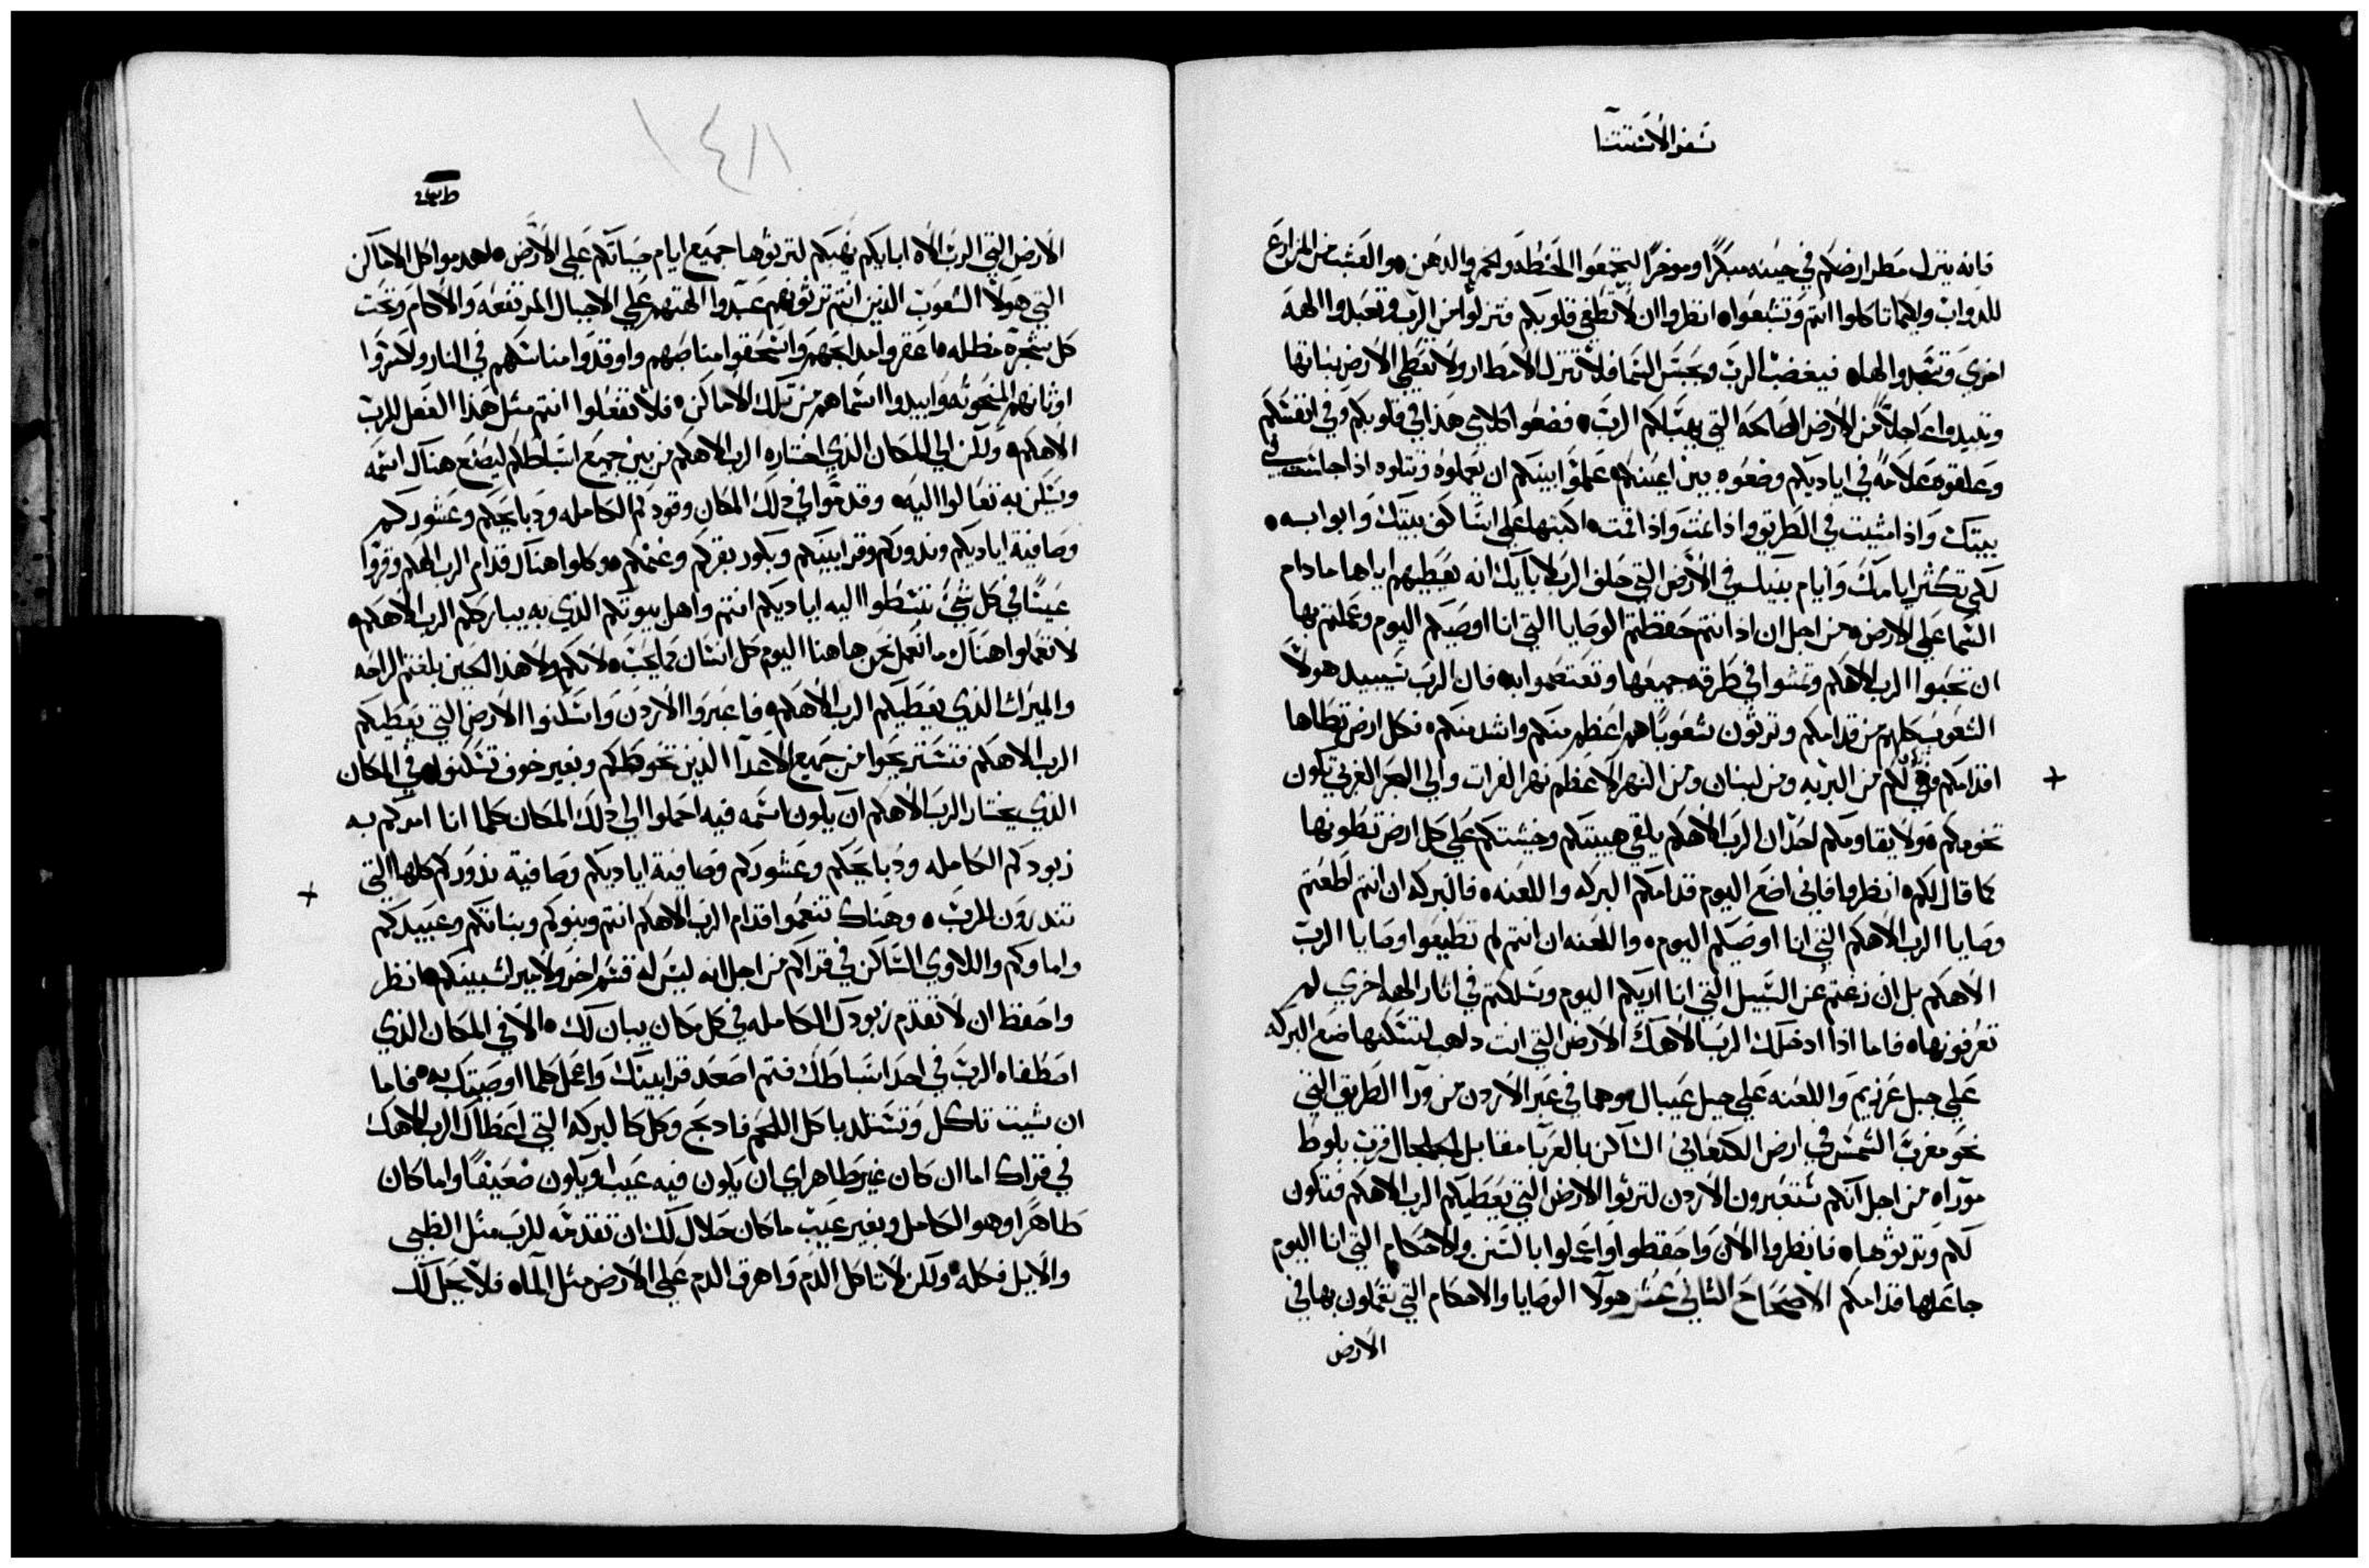 سفر الاستثنا
فانه ينزل مطر ارضكم في حينه مبكرًا وموخرًا لتجمعوا الحنطه والخمر والدهن والعشب من المزارع
للدواب ولكيما تاكلوا انتم وتشبعوا انظروا ان لا تطغي قلوبكم فتزلوا من الرب وتعبدوا الهه
اخري وتسجدوا لها فيغضب الرب ويحبس السما فلا تنزل الامطار ولا تعطي الارض بناتها
وتبيدوا عاجلاً من الارض الصالحه التي يهبها لكم الرب فضعوا كلامي هذا في قلوبكم وفي انفسكم
وعلقوه علامه في اياديكم وضعوه بين اعينكم علموا ابينكم ان يعملوه وتتلوه اذا جلست في
بيتك واذا مشيت في الطريق واذا نمت واذا قمت اكتبها علي اساكف بيتك وابوابه
لكي تكثر ايامك وايام بنيك في الارض التي حلف الرب لابايك انه يعطيهم اياها ما دام
السما علي الارض من اجل ان اذا انتم حفظتم الوصايا التي انا اوصيكم اليوم وعملتم بها
ان تحبوا الرب الاهكم وتمشوا في طرقه جميعها وتعتصموا به فان الرب سيبيد هولا
الشعوب كلهم من قدامكم وترثون شعوبًا هم اعظم منكم واشد منكم فكل ارض تطاها
اقدامكم فهي لكم من البريه ومن لبنان ومن النهر الاعظم نهر الفرات والي البحر الغربي تكون
تخومكم ولا يقاومكم احد ان الرب الاهكم يلقي هيبتكم وخشيتكم علي كل ارض تطونها
كما قال لكم انظروا فاني اضع اليوم قدامكم البركه واللعنه فالبركه ان انتم اطعتم
وصايا الرب الاهكم التي انا اوصيكم اليوم واللعنه ان انتم لم تطيعوا وصايا الرب
الاهكم بل ان زغتم عن السبيل التي انا اريكم اليوم وسلكتم في اثار الهه اخري لم
تعرفونها فاما اذا ادخلك الرب الاهك الارض التي انت داهب لتسكنها ضع البركه
علي جبل غرزيم واللعنه علي جبل عيبال وهما في عبر الاردن من ورا الطريق التي
نحو مغرب الشمس في ارض الكنعاني الساكن بالعربا مقابل الجلجال قرب بلوط
موراه من اجل انكم ستعبرون الاردن لترثوا الارض التي يعطيكم الرب الاهكم فتكون
لكم وترثوها فانظروا الان واحفظوا واعملوا بالسنن والاحكام التي انا اليوم
جاعلها قدامكم الاصحاح الثاني عشر هولا الوصايا والاحكام التي تعملون بها في
الارض
١٤٨
الارض التي الرب الاه ابايكم يهبكم لترثوها جميع ايام حياتكم علي الارض اهدموا كل الاماكن
التي هولا الشعوب الذين انتم ترثونهم عبدوا الهتهم علي الاجبال المرتفعه والاكام وتحت
كل شجرة مظله اعقروا مدابحهم واسحقوا مناصبهم واوقدوا مناسكهم في النار ولاشوا
اوثانهم المنحوته وابيدوا اسماهم من تلك الاماكن فلا تفعلوا انتم مثل هذا الفعل للرب
الاهكم ولكن الي المكان الذي اختاره الرب الاهكم من بين جميع اسباطكم ليضع هناك اسمه
ويسكن به تعالوا اليه وقدموا في ذلك المكان وقودكم الكامله ودبايحكم وعشوركم
وصافية اياديكم وندوركم وقرابينكم وبكور بقركم وغنمكم وكلوا هناك قدام الرب الهكم وقروا
عينًا في كل شي تنبسطوا اليه اياديكم انتم واهل بيوتكم الذي به يبارككم الرب الاهكم
لا تعملوا هناك ما نعمل نحن هاهنا اليوم كل انسان كما يحب لانكم ولا هذا الحين بلغتم الراحه
والميرات الذي يعطيكم الرب الاهكم فاعبروا الاردن واسكنوا الارض التي يعطيكم
الرب الاهكم فتستريحوا من جميع الاعدآ الذين تحوطكم وبغير خوف تسكنوا في المكان
الذي يختار الرب الاهكم ان يكون اسمه فيه احملوا الي ذلك المكان كلما انا امركم به
زبودكم الكامله ودبايحكم وعشوركم وصافية اياديكم وصافية ندوركم كلها التي
تندرون للرب وهناك تنعموا قدام الرب الاهكم انتم وبنوكم وبناتكم وعبيدكم
واماوكم واللاوي الساكن في قراكم من اجل انه ليس له قسم اخر ولا ميرات بينكم انظر
واحفظ ان لا تقدم زبودك الكامله في كل مكان يبان لك الا في المكان الذي
اصطفاه الرب في احد اسباطك فتم اصعد قرابينك واعمل كلما اوصيتك به فاما
ان شيت تاكل وتستلد باكل اللحم فادبح وكل كالبركه التي اعطاك الرب الاهك
في قراك اما ان كان غير طاهر اي ان يكون فيه عيب او يكون ضعيفًا واما كان
طاهرًا وهو الكامل وبغير عيب ما كان حلال لك ان تقدمه للرب مثل الظبي
والايل فكله ولكن لا تاكل الدم واهرق الدم علي الارض مثل المآ فلا يحل لك